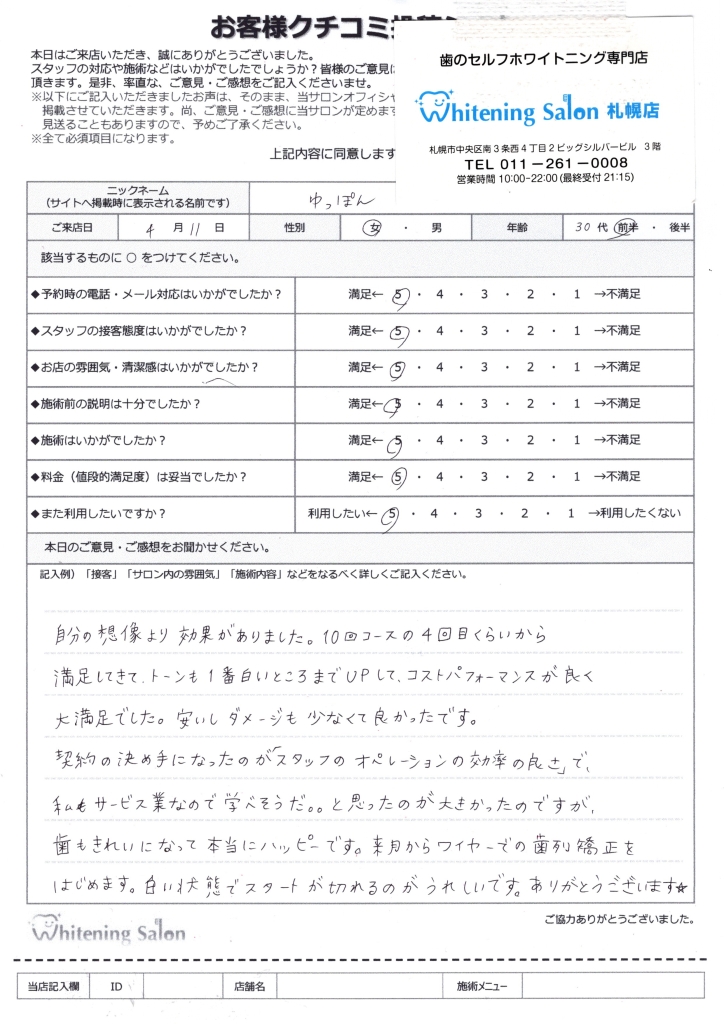 お客様クチコミ
本日はご来店いただき、誠にありがとうございました。
スタッフの対応や施術などはいかがでしたでしょうか？皆様のご意見に
頂きます。是非、率直な、ご意見・ご感想をご記入くださいませ。
※以下にご記入いただきましたお声は、そのまま、当サロンオフィシャ
掲載させていただきます。尚、ご意見・ご感想に当サロンが定めます
見送ることもありますので、予めご了承ください。
※全て必須項目になります。
上記内容に同意します
歯のセルフホワイトニング専門店
Whitening Salon 札幌店
札幌市中央区南3条西4丁目2ビッグシルバービル 3階
TEL 011-261-0008
営業時間 10:00-22:00 (最終受付 21:15)
ニックネーム
(サイトへ掲載時に表示される名前です) ゆっぽん
ご来店日 4 月 11 日 性別 女 ・ 男 年齢 30 代 前半 ・ 後半
該当するものに ○ をつけてください。
◆予約時の電話・メール対応はいかがでしたか？ 満足← 5 ・ 4 ・ 3 ・ 2 ・ 1 →不満足
◆スタッフの接客態度はいかがでしたか？ 満足← 5 ・ 4 ・ 3 ・ 2 ・ 1 →不満足
◆お店の雰囲気・清潔感はいかがでしたか？ 満足← 5 ・ 4 ・ 3 ・ 2 ・ 1 →不満足
◆施術前の説明は十分でしたか？ 満足← 5 ・ 4 ・ 3 ・ 2 ・ 1 →不満足
◆施術はいかがでしたか？ 満足← 5 ・ 4 ・ 3 ・ 2 ・ 1 →不満足
◆料金（値段的満足度）は妥当でしたか？ 満足← 5 ・ 4 ・ 3 ・ 2 ・ 1 →不満足
◆また利用したいですか？ 利用したい← 5 ・ 4 ・ 3 ・ 2 ・ 1 →利用したくない
本日のご意見・ご感想をお聞かせください。
記入例）「接客」「サロン内の雰囲気」「施術内容」などをなるべく詳しくご記入ください。
自分の想像より効果がありました。10回コースの4回目くらいから
満足してきて、トーンも1番白いところまでUPして、コストパフォーマンスが良く
大満足でした。安いしダメージも少なくて良かったです。
契約の決め手になったのが「スタッフのオペレーションの効率の良さ」で、
私もサービス業なので学べそうだ。。と思ったのが大きかったのですが、
歯もきれいになって本当にハッピーです。来月からワイヤーでの歯列矯正を
はじめます。白い状態でスタートが切れるのがうれしいです。ありがとうございます☆
ご協力ありがとうございました。
Whitening Salon
当店記入欄 ID 店舗名 施術メニュー